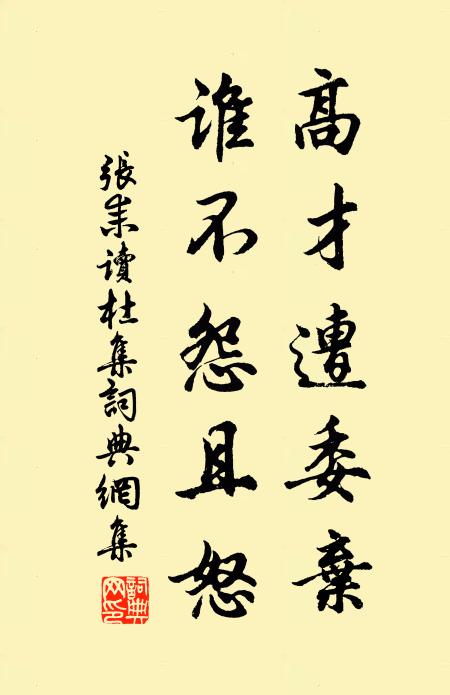 高才遭委棄
誰不怨且怒
張耒讀杜集詞典網集
詞典網印